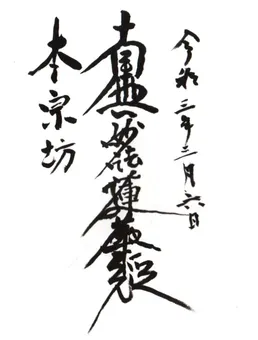 令和三年三月六日
南無妙法蓮華経
本宗坊